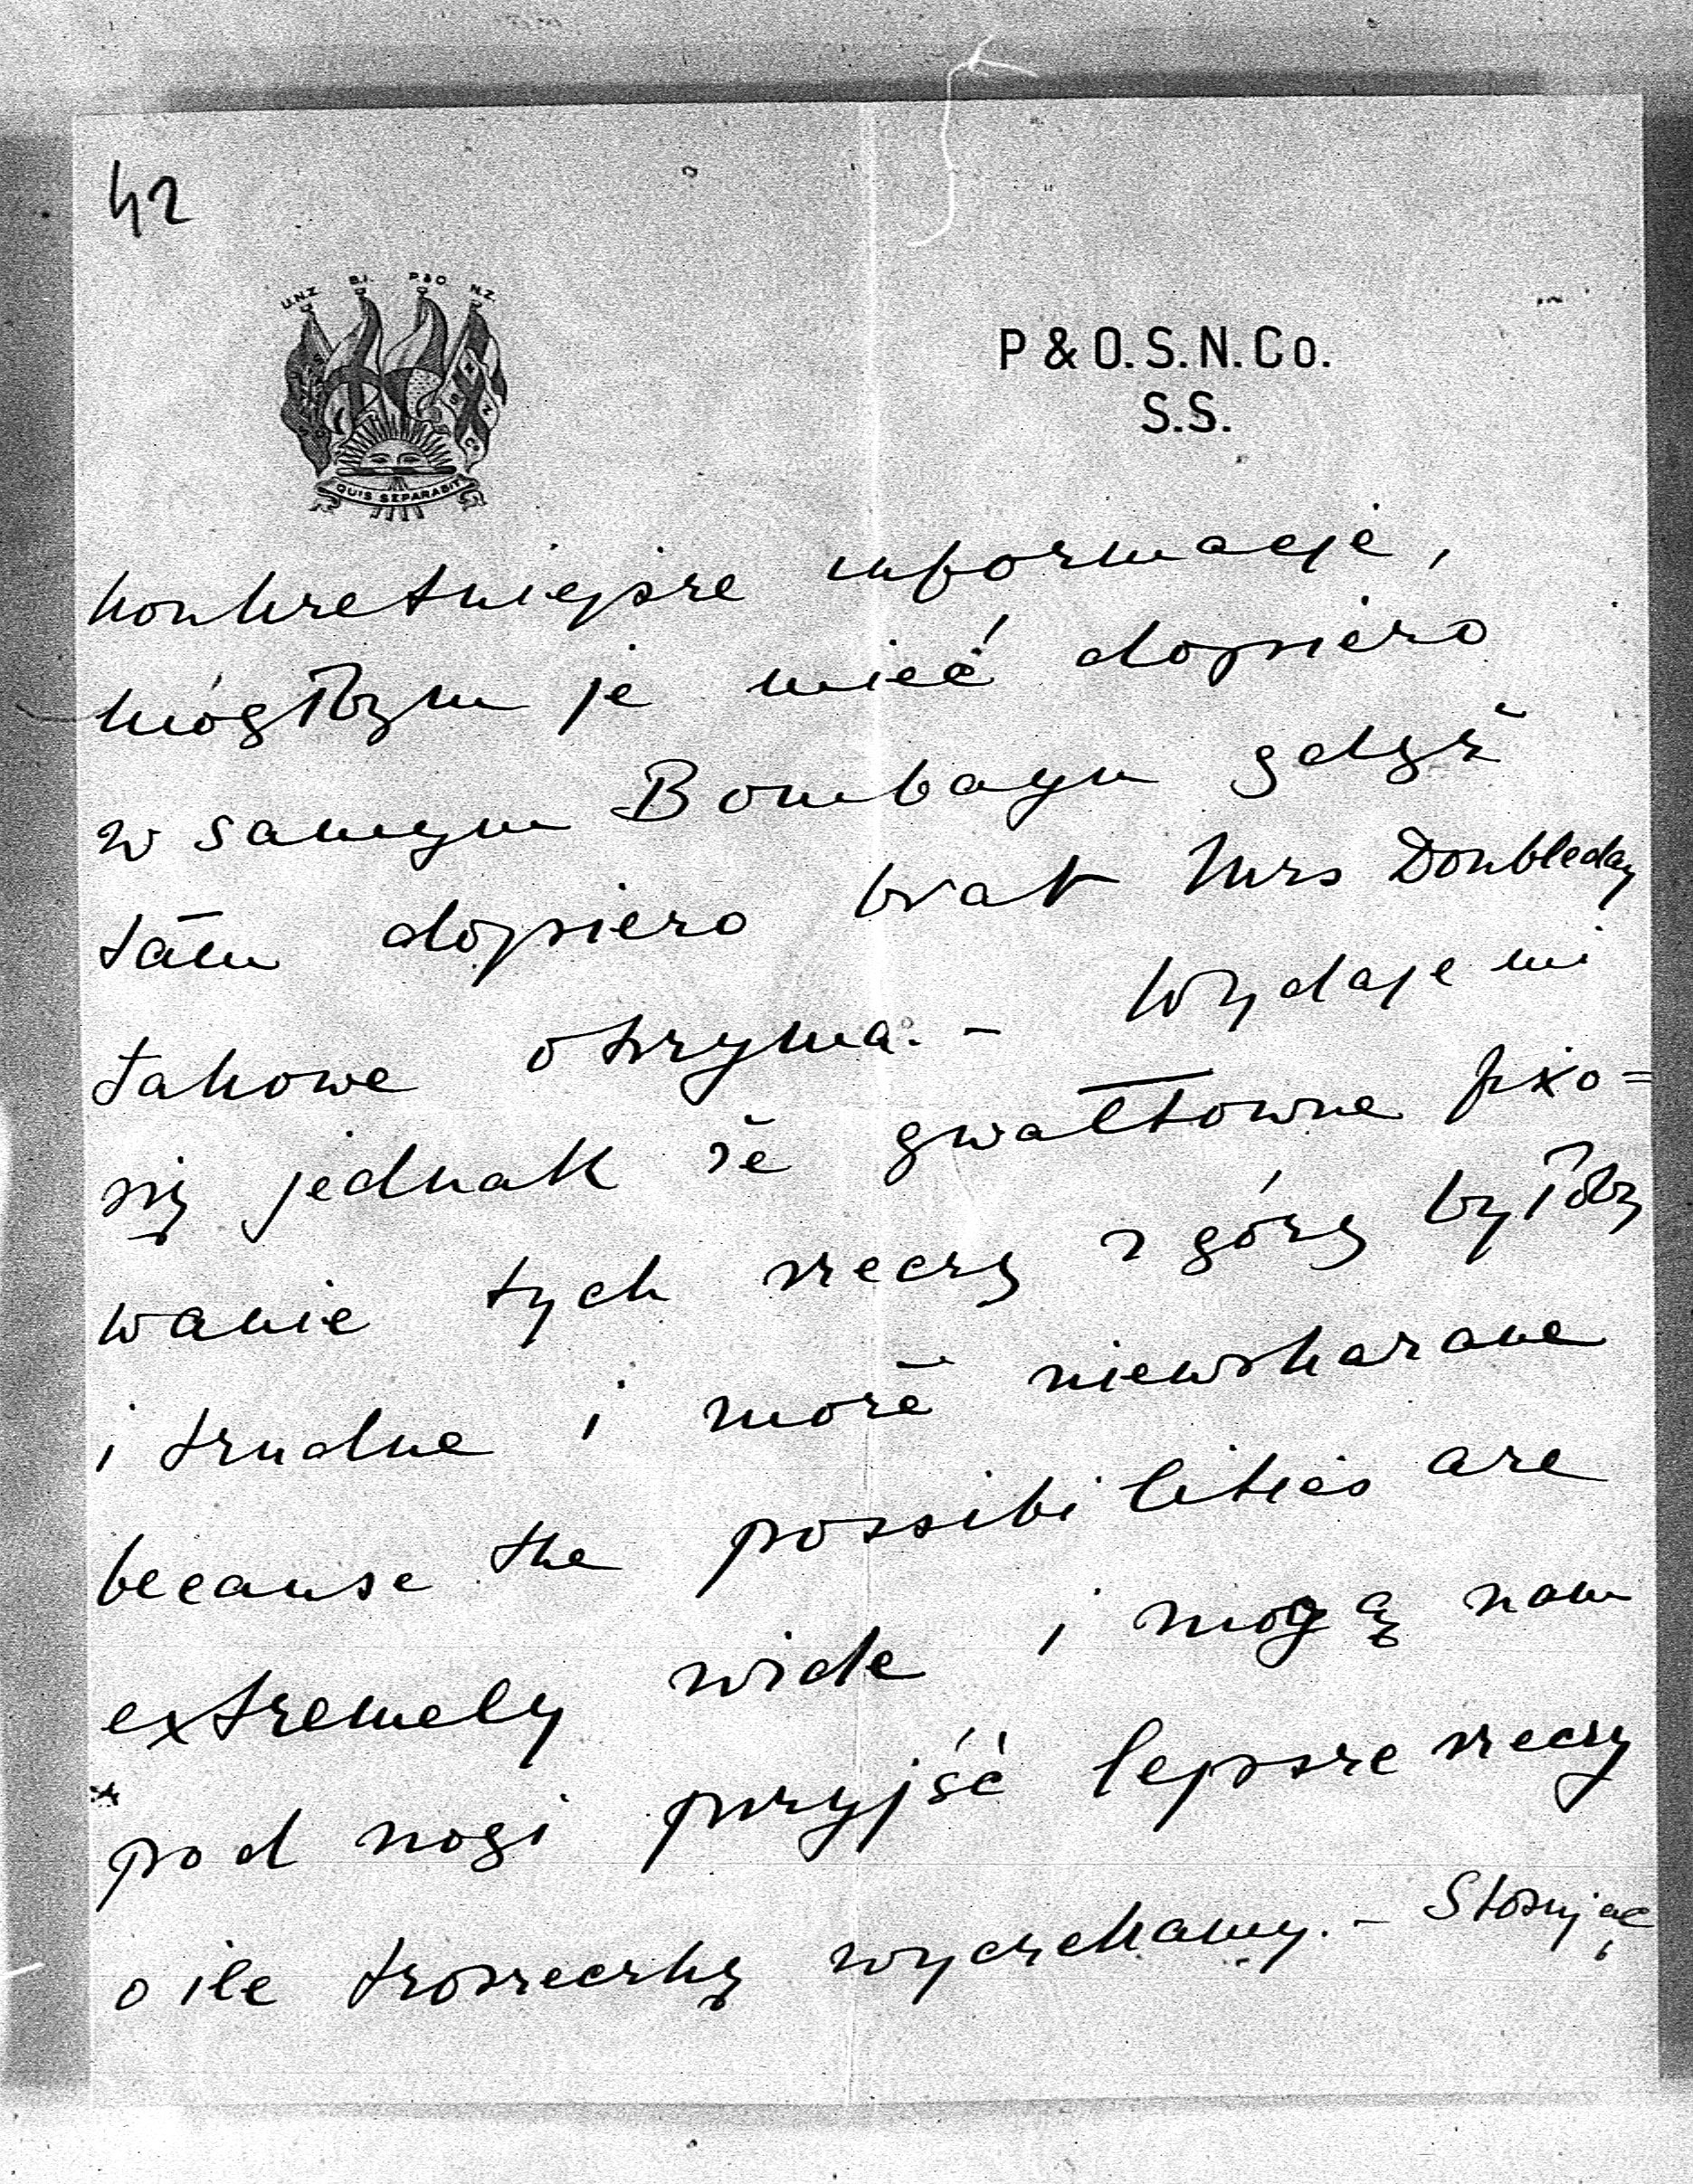 42
U.N.Z. B.I. P&O N.Z.
QUIS SEPARABIT
P & O. S. N. Co.
S.S.
konkretniejsze informacje,
mógłbym je mieć dopiero
w samym Bombayu gdyż
tam dopiero brat Mrs Doubleday
takowe otrzyma. - Wydaje mi
się jednak że gwałtowne fixo=
wanie tych rzeczy z góry byłoby
i trudne i może niewskazane
because the possibilities are
extremely wide i mogą nam
pod nogi przyjść lepsze rzeczy
o ile troszeczkę wyczekamy. - Stosując